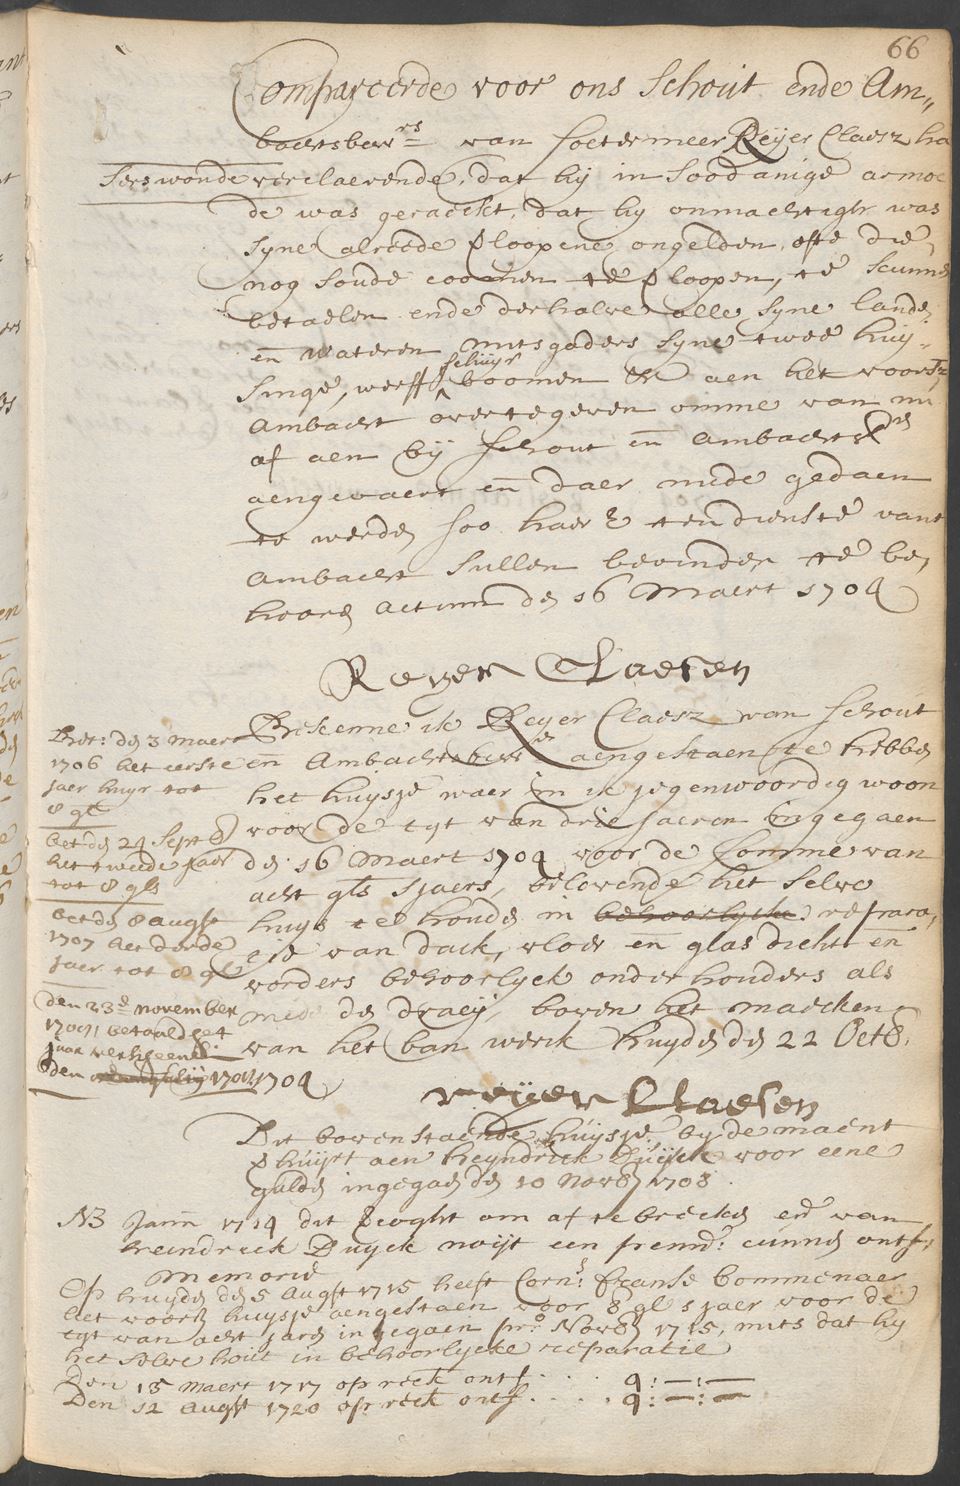 66
Compareerde voor ons Schout ende Am„
bachtsbewrs van Soetermeer Reijer Claesz ha
serswonde verclaerende, dat hij in soodanige armoe
de was geraeckt, dat hij onmachtigh was
syne alreede verloopene ongelden, ofte die
nog soude coomen te verloopen, te kunne
betaelen ende derhalve alle syne lande,
en wateren mitsgaders syne twee huy„
singe, werff schuyr boomen &c aen het voorsz
Ambacht overtegeven omme van nu
af aen bij Schout en Ambachts
aengevaert en daer mede gedaen
te werden soo haer E ten dienste vant
Ambacht sullen bevinden te be„
hooren Actum den 16 Maert 1704
Reyer Claesen
Bekenne ik Reyer Claesz van Schout
en Ambachtsbewrs aengestaen te hebben
het huysje waer in ik jegenwoordig woon
voor de tyt van drie jaeren ingegaen
den 16 Maert 1704 voor de somme van
acht gls sjaers, belovende het selve
huys te houden in behoorlycke repara„
tie van dack, vloer en glas dicht en
vorders behoorlyck onderhouders als
mede de draeij, boven het maecken
van het ban werck Huyden den 22 Octob.
1704
reijer Claesen
Bet: den 3 maert
1706 het eerste
jaer huyr tot
8 gl
bet den 24 Septb
het tweede jaer
tot 8 gls
bet den 8 augst
1707 het derde
jaer tot 8 gl
den 23e november
1709 betaald het
jaar verscheenen
den 1708
Dit bovenstaende huysje by de maent
verhuyrt aen heyndrick Duyck voor eene
gulden ingegaen den 10 Novemb 1708.
NB Janu 1714 dit verkoght om af te breecken en van
heindrick Duyck noijt een penn: cunnen ontf:
Memorie
Op huyden den 5 Augst 1715 heeft Corns. Franse Bommenaer
het voorsz huysje aengestaen voor 8 gl sjaer voor de
tyt van acht jaren ingegaen pro Novemb 1715, mits dat hy
het selve hout in behoorlycke reparatie
Den 15 Maert 1717 op reek ontf. . . . 9:—:—
Den 12 Augst 1720 op reek ontf. . . . 9:—:—